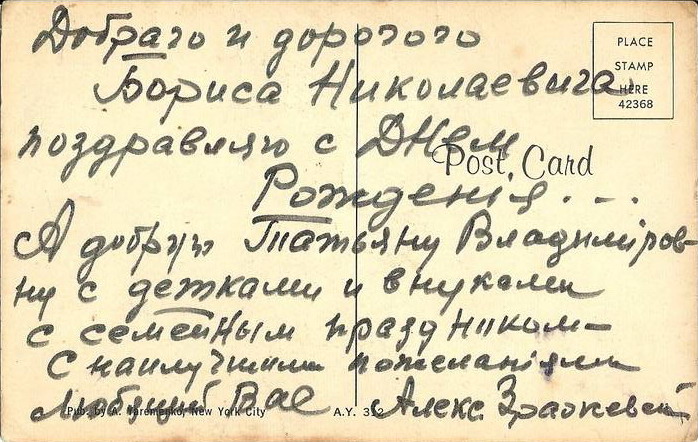 Доброго и дорогого
PLACE
STAMP
HERE
42368
Бориса Николаевича
поздравляю с Днем
Post Card
Рожденiя...
А добрую Татьяну Владимiров-
ну с детками и внуками
с семейным праздником-
С наилучшими пожеланiями
Любящий Вас Алекс.
Pub. by A. Yaremenko, New York City
A.Y. 312